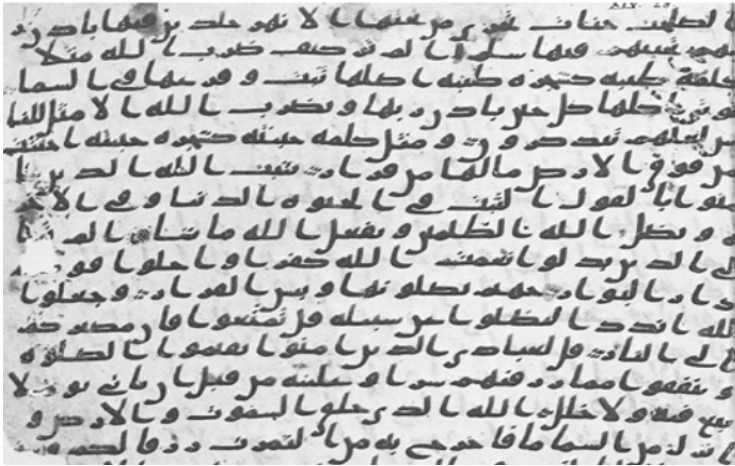 الصلحت جنات تجري من تحتها الانهر خلدين فيها باذن ر
بهم تحيتهم فيها سلم الم تر كيف ضرب الله مثلا
كلمة طيبه كشجره طيبه اصلها ثبت وفرعها في السما
توتي اكلها كل حين باذن ربها ويضرب الله الامثل للنا
س لعلهم يتذكرون ومثل كلمه خبيثه كشجره خبيثه اجتثت
من فوق الارض ما لها من قرار يثبت الله الذين ا
منوا بالقول الثبت في الحيوه الدنيا وفي الاخر
ه ويضل الله الظلمين ويفعل الله ما يشا الم
لى الذين بدلوا نعمت الله كفرا واحلوا قو
دار البوار جهنم يصلونها وبيس القرار وجعلوا
لله اندد ا ليضلوا عن سبيله قل تمتعوا فان مصيركم
ا لى النار قل لعبادي الذين امنوا يقيموا الصلوه
و ينفقوا مما رزقنهم سرا وعلنيه من قبل ان ياتي يوم لا
بيع فيه ولا خلل الله الذي خلق السموت والارض و
انزل من السما ما فاخرج به من الثمرت رزقا لكم